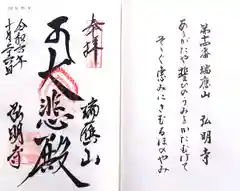 第十四番 瑞應山 弘明寺
ありがたや誓ひのうみをかたむけて
そそぐ恵みにさむるほのやみ
奉拝
瑞應山
大悲殿
令和六年
十月二十六日
弘明寺